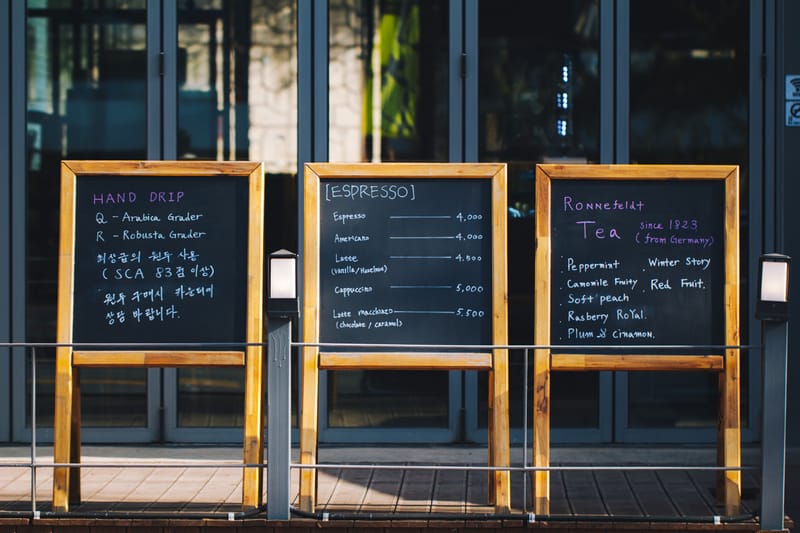 HAND DRIP
Q - Arabica Grader
R - Robusta Grader
최상급의 원두 사용
(SCA 83점 이상)
원두 구매시 카운터에
상담 바랍니다.
[ESPRESSO]
Espresso 4,000
Americano 4,000
Latte 4,500
(Vanilla/Hazelnut)
Cappuccino 5,000
Latte macchiato 5,500
(chocolate / caramel)
Ronnefeldt
Tea since 1823
(from Germany)
Peppermint
Camomile Fruity
Soft peach
Rasberry Royal.
Plum & Cinamon.
Winter Story
Red Fruit.